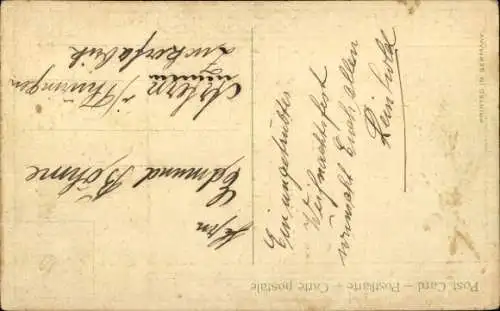 Post Card – Postkarte – Carte postale
Ein ungetrübtes
Weihnachtsfest
wünscht Euch allen
Reinhold
Hrn
Edmund Böhme
Artern i/Thüringen
Zuckerfabrik
PRINTED IN GERMANY